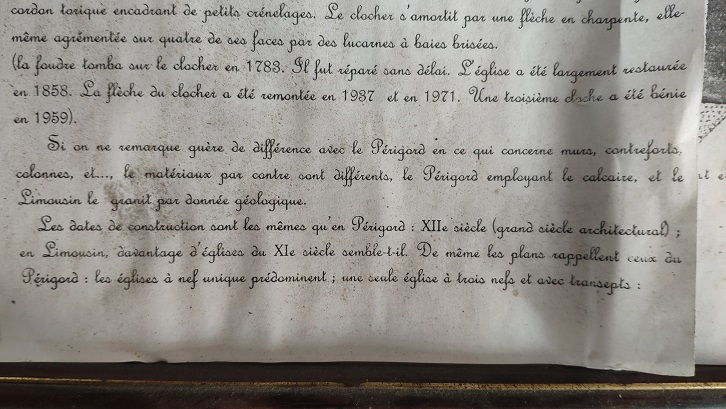 cordon torique encadrant de petits crénelages. Le clocher s'amortit par une flèche en charpente, elle-
même agrémentée sur quatre de ses faces par des lucarnes à baies brisées.
(la foudre tomba sur le clocher en 1783. Il fut réparé sans délai. L'église a été largement restaurée
en 1858. La flèche du clocher a été remontée en 1937 et en 1971. Une troisième cloche a été bénie
en 1959).
Si on ne remarque guère de différence avec le Périgord en ce qui concerne murs, contreforts,
colonnes, et..., le matériaux par contre sont différents, le Périgord employant le calcaire, et le
Limousin le granit par donnée géologique.
Les dates de construction sont les mêmes qu'en Périgord : XIIe siècle (grand siècle architectural) ;
en Limousin, davantage d'églises du XIe siècle semble-t-il. De même les plans rappellent ceux du
Périgord : les églises à nef unique prédominent ; une seule église à trois nefs et avec transepts :